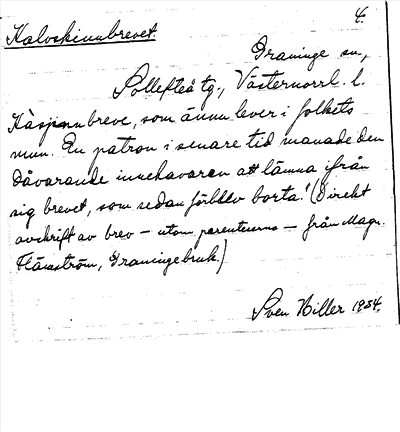 4.
Kalvskinnbrevet
Graninge sn.,
Sollefteå tg., Västernorrl. l.
brevet, som ännu lever i folkets
mun. En patron i senare tid manade den
dåvarande innehavaren att lämna ifrån
sig brevet, som sedan förblev borta! (Direkt
avskrift av brev – utom parenteserna – från Magn.
Flämström, Graningebruk.)
Sven Hiller 1934.